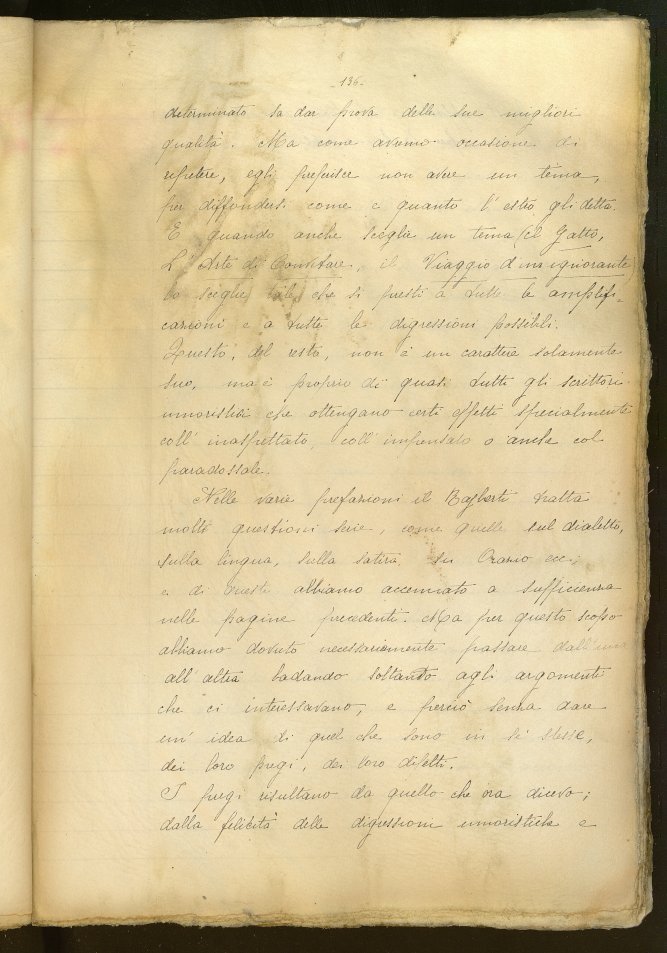 - 136 -
determinato sa dar prova delle sue migliori
qualità. Ma come avemo occasione di
ripetere, egli preferisce non avere un tema,
per diffondersi come e quanto l'estro gli detta.
E quando anche sceglie un tema (il Gatto,
L'Arte di Convitare, il Viaggio d'un ignorante
lo sceglie tale che si presti a tutte le amplifi-
cazioni e a tutte le digressioni possibili.
Questo, del resto, non è un carattere solamente
suo, ma è proprio di quasi tutti gli scrittori
umoristici che ottengano certi effetti specialmente
coll'inaspettato, coll'impensato o anche col
paradossale.
Nelle varie prefazioni il Rajberti tratta
molte questioni serie, come quelle sul dialetto,
sulla lingua, sulla satira, su Orazio ecc;
e di queste abbiamo accennato a sufficienza
nelle pagine precedenti. Ma per questo scopo
abbiamo dovuto necessariamente passare dall'una
all'altra badando soltanto agli argomenti
che ci interessavano, e perciò senza dare
un'idea di quel che sono in sè stesse,
dei loro pregi, dei loro difetti.
I pregi risultano da quello che ora dicevo;
dalla felicità delle digressioni umoristiche e